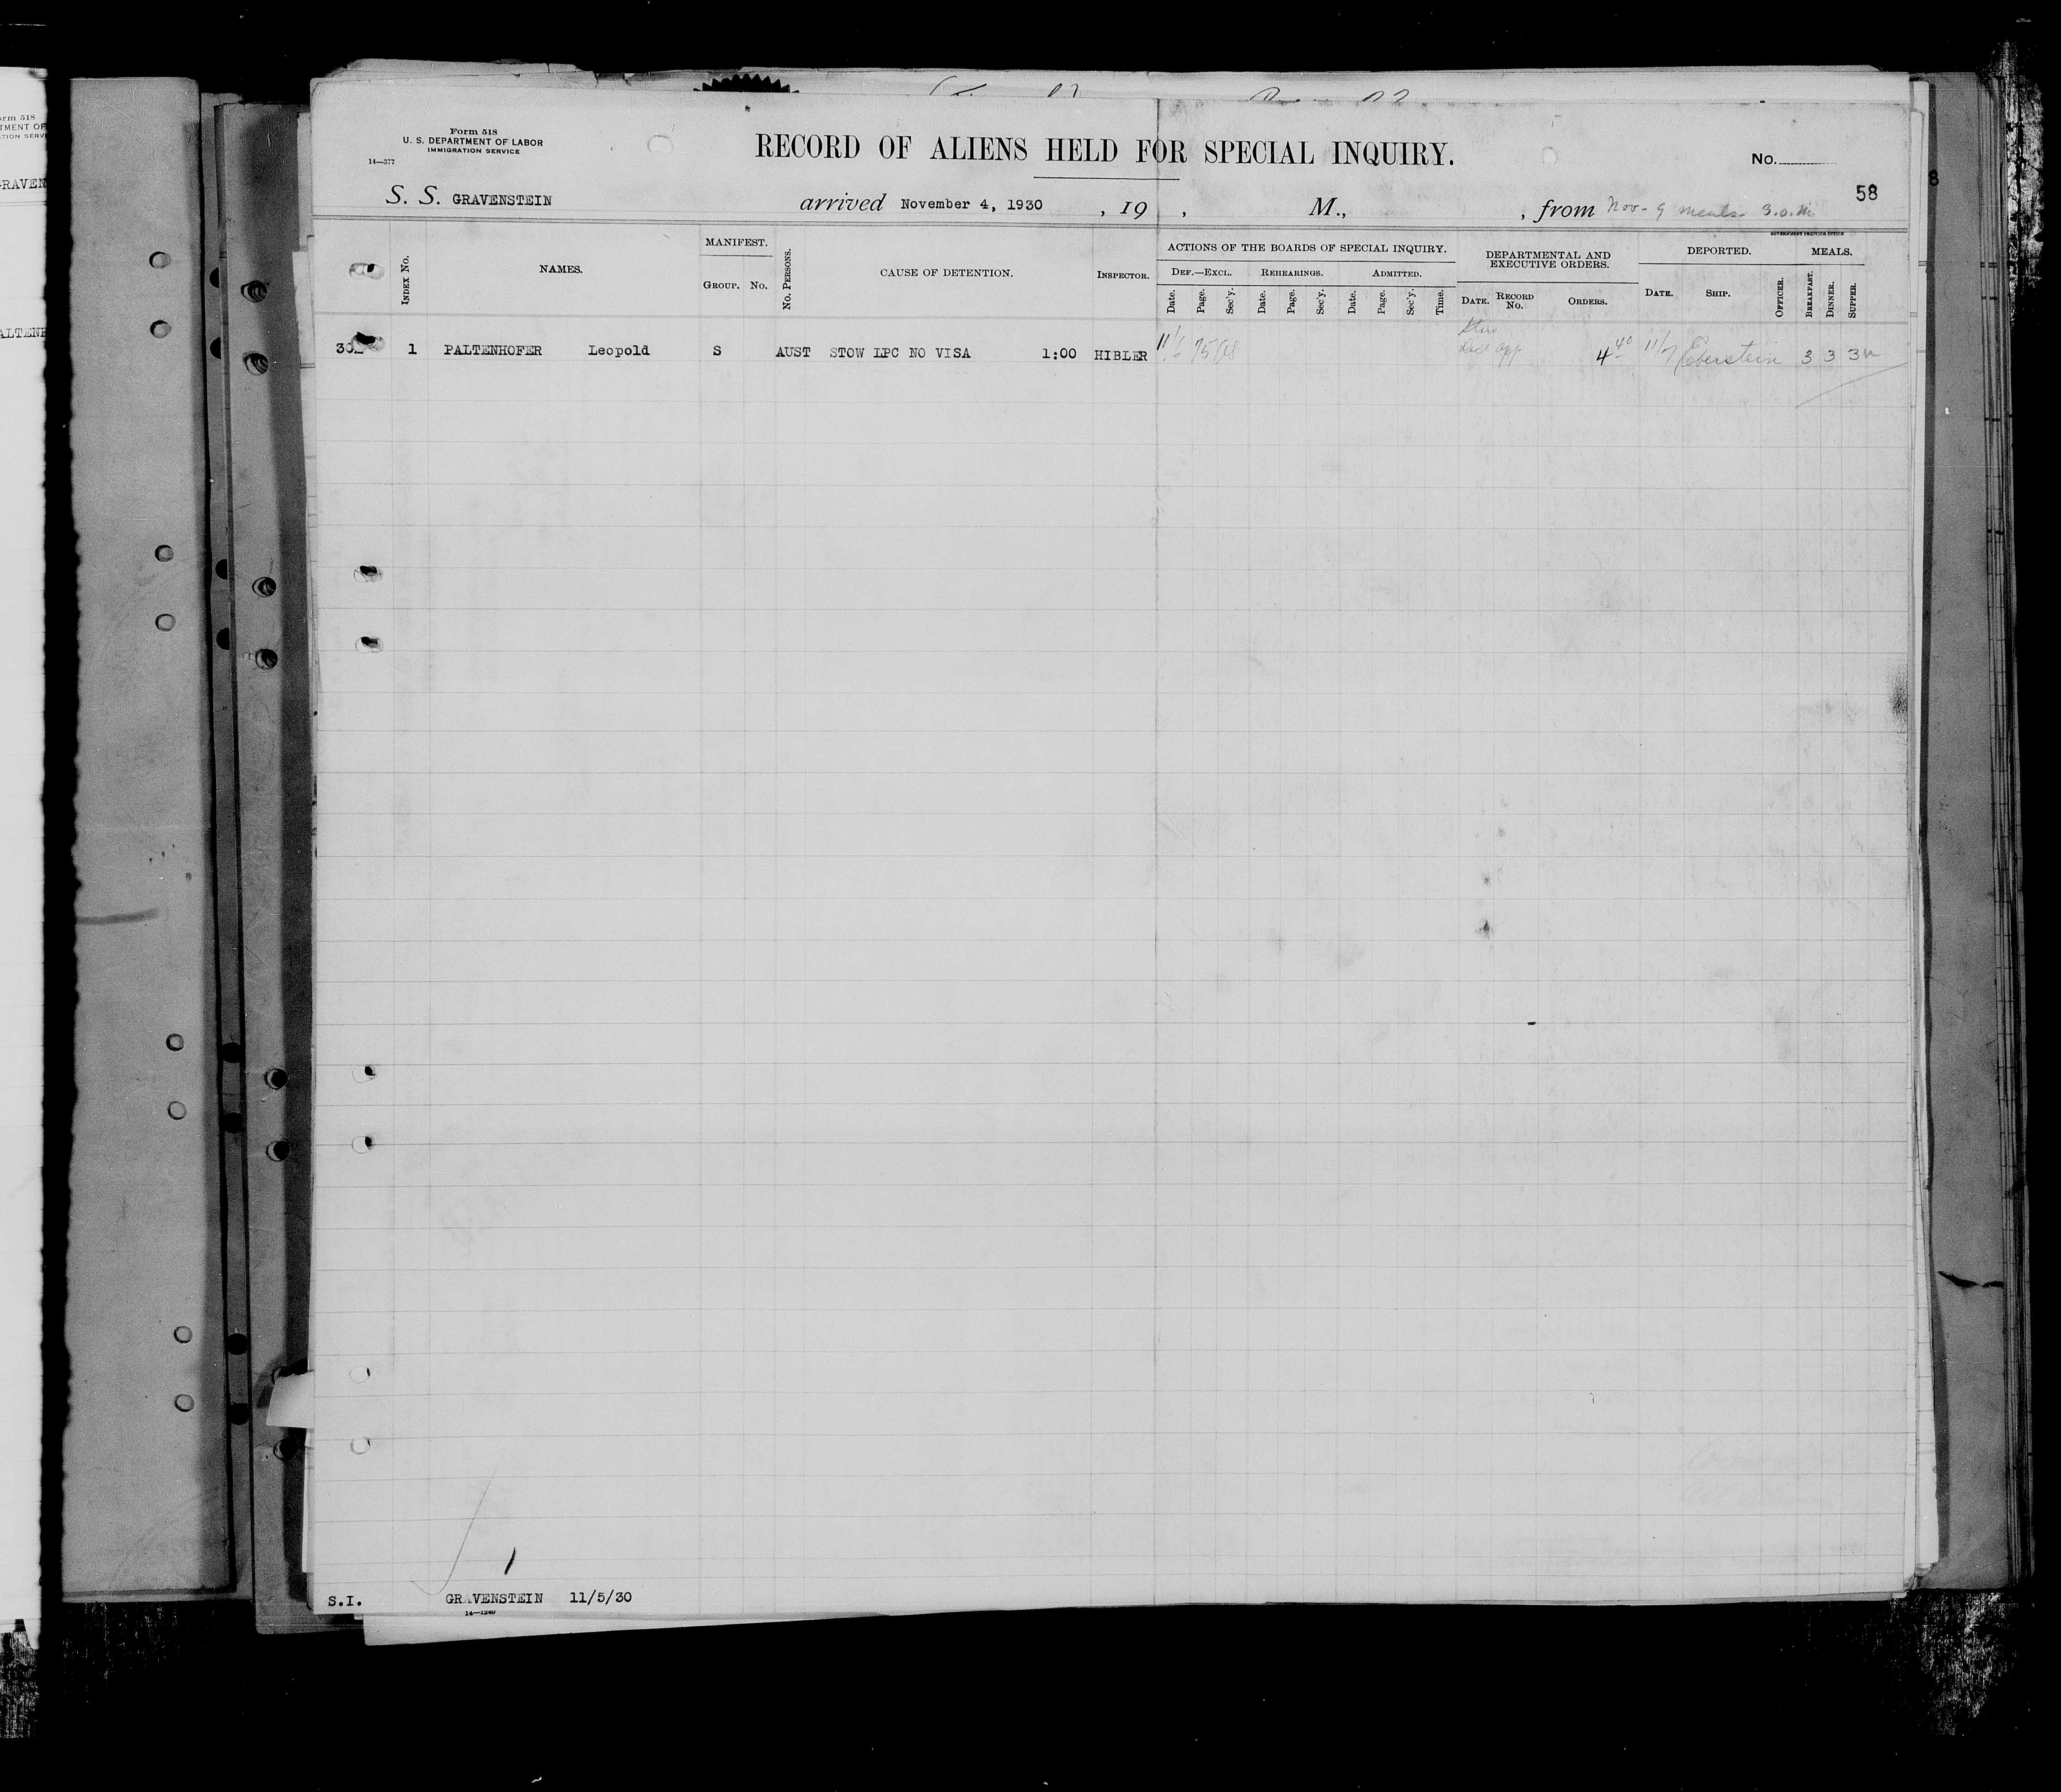 orm 518
TMENT OF
TION SERV
GRAVEN
ALTENH
Form 518
U. S. DEPARTMENT OF LABOR
IMMIGRATION SERVICE
14—377
RECORD OF ALIENS HELD FOR SPECIAL INQUIRY.
No.
58
8
S. S. GRAVENSTEIN arrived November 4, 1930 , 19 , M., , from Nov- 9 meals
GOVERNMENT PRINTING OFFICE
INDEX No. NAMES. MANIFEST. GROUP. No. No. PERSONS. CAUSE OF DETENTION. INSPECTOR. ACTIONS OF THE BOARDS OF SPECIAL INQUIRY. DEF.—EXCL. Date. Page. Sec'y. REHEARINGS. Date. Page. Sec'y. ADMITTED. Date. Page. Sec'y. Time. DEPARTMENTAL AND EXECUTIVE ORDERS. DATE. RECORD No. ORDERS. DEPORTED. DATE. SHIP. OFFICER. MEALS. BREAKFAST. DINNER. SUPPER.
30 1 PALTENHOFER Leopold S AUST STOW LPC NO VISA 1:00 HIBLER 11/6 75 4 40 11/7 Eberstein 3 3 3
S.I. GRAVENSTEIN 11/5/30
14—1240